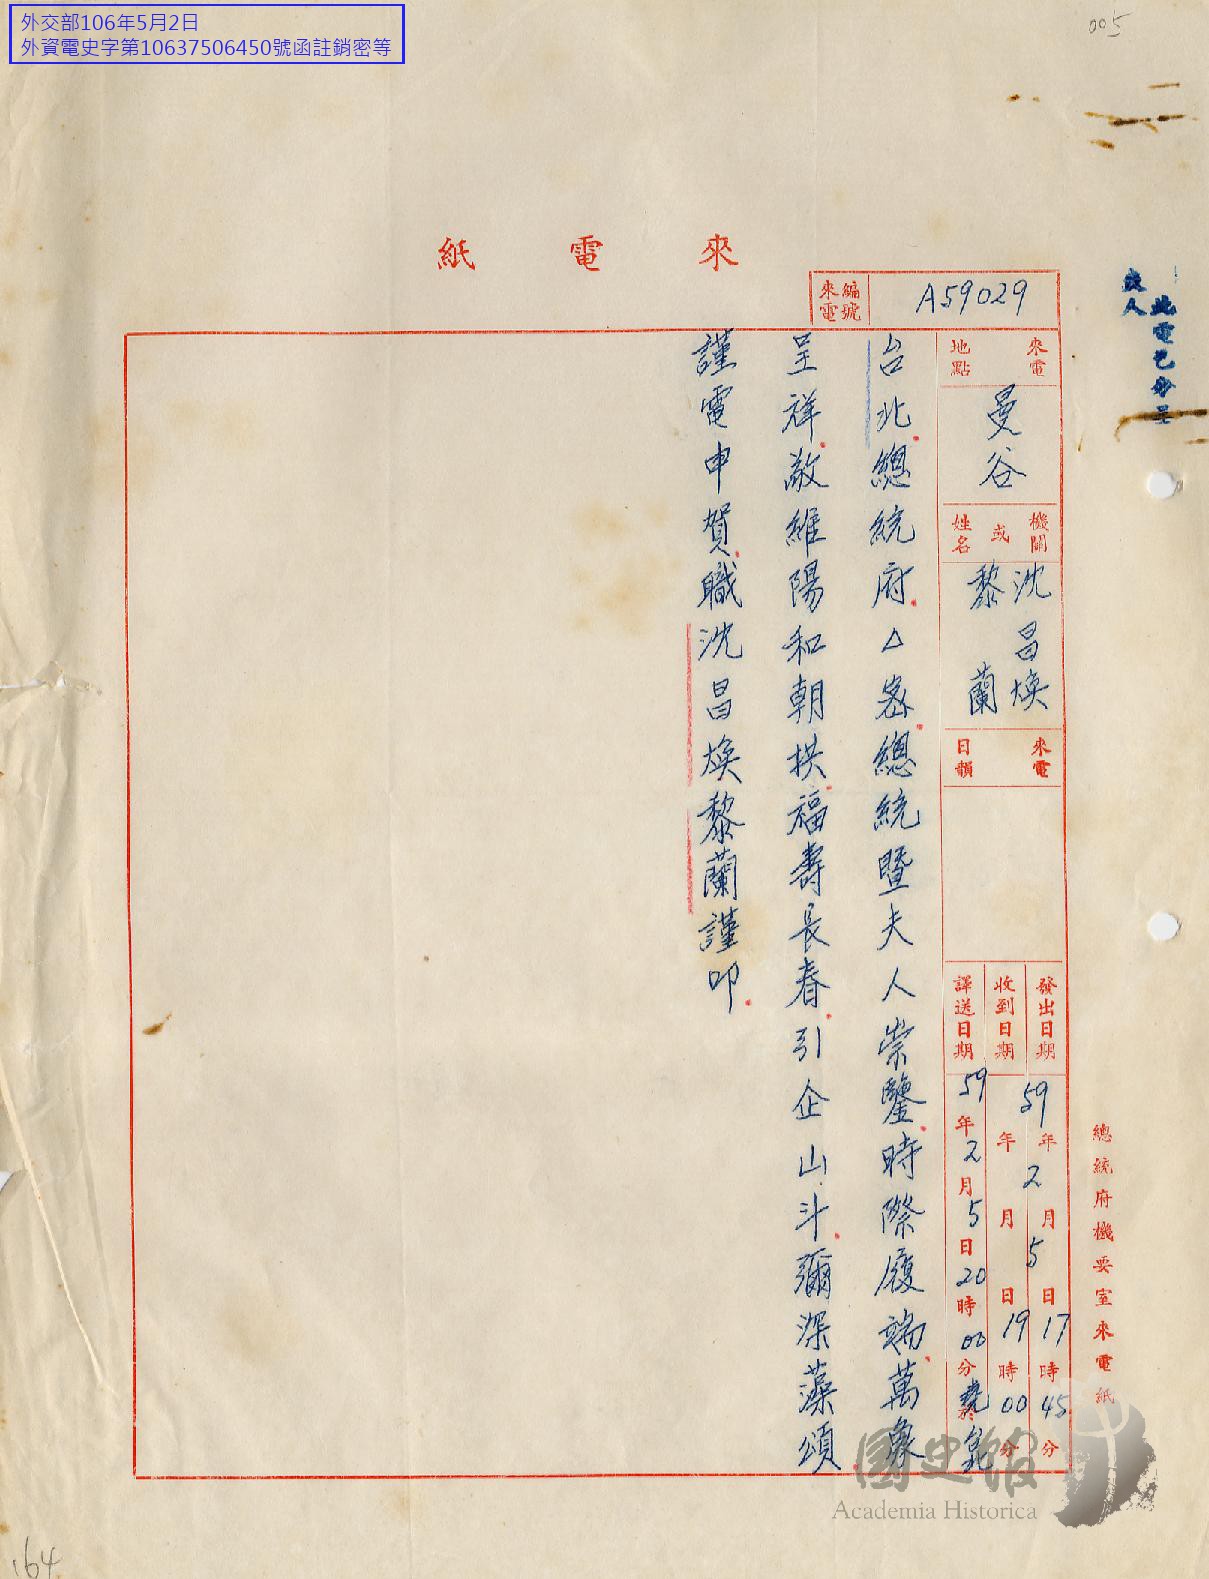 外交部106年5月2日
外資電史字第10637506450號函註銷密等
005
來電紙
來電編號 A59029
此電已分呈
夫人
來電地點 曼谷
機關或姓名 沈昌煥 黎蘭
來電日韻
發出日期 59年2月5日17時45分
收到日期 年月日19時00分
譯送日期 59年2月5日20時00分
台北總統府△密總統暨夫人崇鑒時際履端萬象
呈祥敬維陽和朝拱福壽長春引企山斗彌深藻頌
謹電申賀職沈昌煥黎蘭謹叩
總統府機要室來電紙
國史館
Academia Historica
164